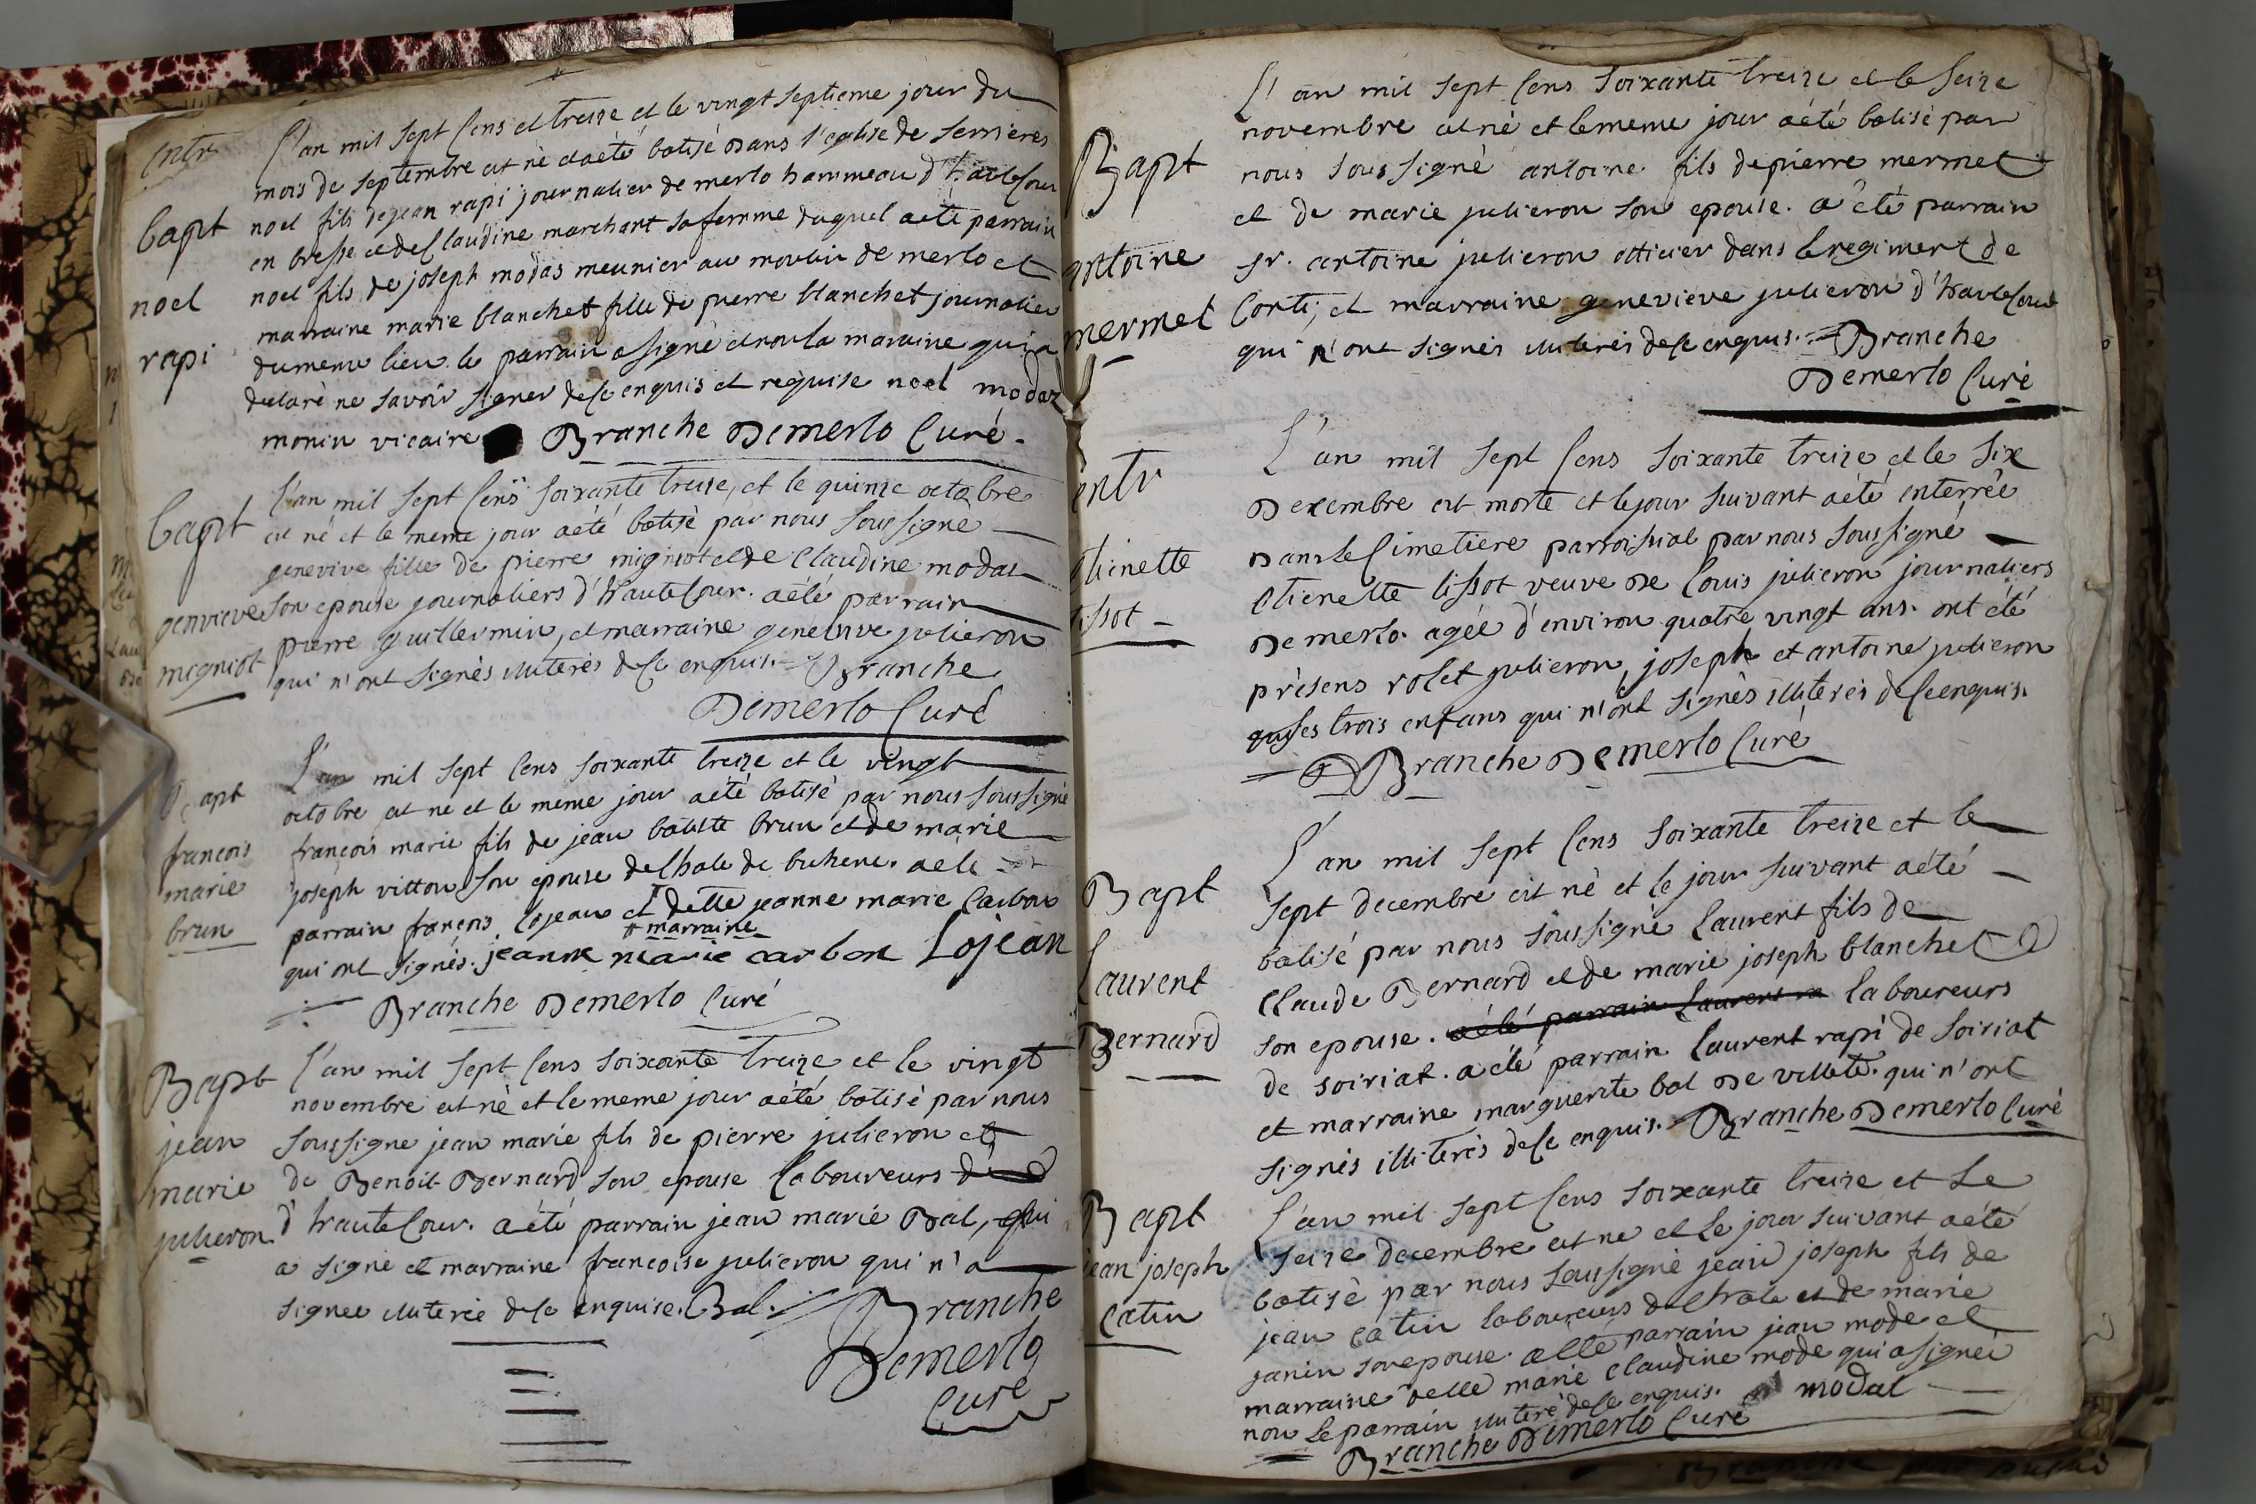 entr
L'an mil sept cens et treise et le vingt septieme jour du
mois de septembre est né et a été batisé dans l'eglise de serrieres
Bapt
noel
rapi
noel fils de jean rapi journalier de merlo hammeau d'hautecour
en bresse et de Claudine marchant sa femme duquel a ete parrain
noel fils de joseph modas meunier au moulin de merlo et
marraine marie blanchet fille de pierre blanchet journalier
du meme lieu le parrain a signé et non la maraine qui a
declaré ne savoir signer de ce enquis et requise noel modaz
monin vicaire Branche Demerlo Curé.
Bapt
genvieve
migniot
L'an mil sept cens soixante treise, et le quinze octobre
est né et le meme jour a été batisé par nous soussigné
genevive fille de pierre migniot et de Claudine modas
son epouse journaliers d'hautecour. a été parrain
pierre guillermin, et marraine genevive julieron
qui n'ont signés illiterés de ce enquis. Branche
Demerlo Curé
Bapt
francois
marie
brun
L'an mil sept cens soixante treize et le vingt
octobre est né et le meme jour a été batisé par nous soussigné
françois marie fils de jean batiste brun et de marie
joseph vitton son epouse de
parrain françois lojean et delle jeanne marie Carbon
# marraine
qui ont signés. jeanne marie carbon Lojean
Branche Demerlo Curé
Bapt
jean
marie
julieron
L'an mil sept cens soixante treize et le vingt
novembre est né et le meme jour a été batisé par nous
soussigne jean marie fils de pierre julieron et
de Benoit Bernard son epouse laboureurs
d'hautecour. a été parrain jean marie Bal, qui
a signé et marraine francoise julieron qui n'a
signee illiterée de ce enquise. Bal.
Branche
Demerlo
Curé
Bapt
antoine
mermet
L'an mil sept cens soixante treize et le seize
novembre est né et le meme jour a été batisé par
nous soussigné antoine fils de pierre mermet
et de marie julieron son epouse. a été parrain
sr. antoine julieron officier dans le regiment de
Conti, et marraine genevieve julieron d'hautecour
qui n'ont signés illiterés de ce enquis. Branche
Demerlo Curé
entr
etienette
tissot
L'an mil sept cens soixante treize et le six
Decembre est morte et le jour suivant a été enterrée
Dans le Cimetiere parroissial par nous soussigné
etienette tissot veuve de Louis julieron journaliers
De merlo. agée d'environ quatre vingt ans. ont été
présens rolet julieron, joseph et antoine julieron
ses trois enfans qui n'ont signés illiterés de ce enquis.
Branche Demerlo Curé
Bapt
Laurent
Bernard
L'an mil sept cens soixante treize et le
sept decembre est né et le jour suivant a été
batisé par nous soussigné Laurent fils de
Claude Bernard et de marie joseph blanchet
son epouse. a été parrain Laurent ra laboureurs
de soiriat. a été parrain Laurent rapi de soiriat
et marraine marguerite bal de villete. qui n'ont
signés illiterés de ce enquis. Branche Demerlo Curé
Bapt
jean joseph
Catin
L'an mil sept cens soixante treize et le
seize decembre est né et le jour suivant a été
batisé par nous soussigné jean joseph fils de
jean Catin laboureurs de et de marie
janin son epouse. a ete parrain jean mode et
marraine delle marie claudine mode qui a signée
non le parrain illiteré de ce enquis. modat
Branche Demerlo Curé